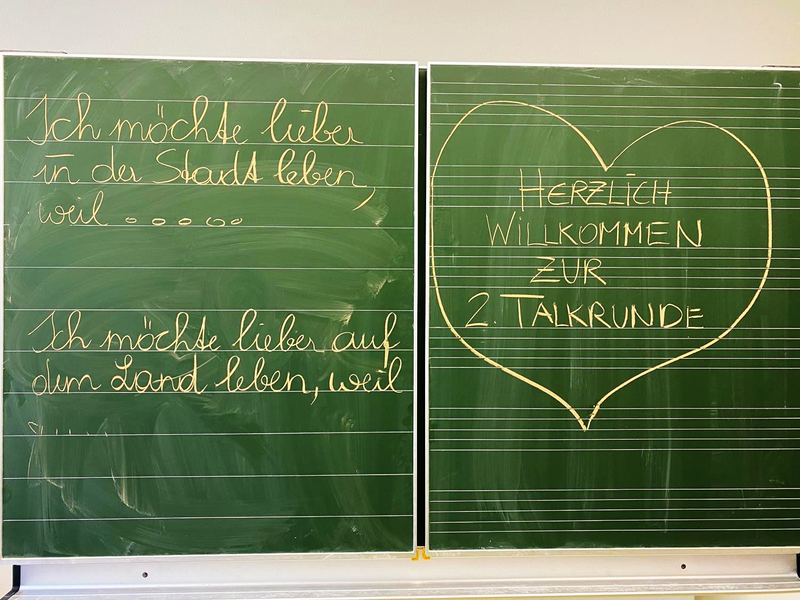 Ich möchte lieber
in der Stadt leben,
weil .....
Ich möchte lieber auf
dem Land leben, weil
.....
HERZLICH
WILLKOMMEN
ZUR
2. TALKRUNDE